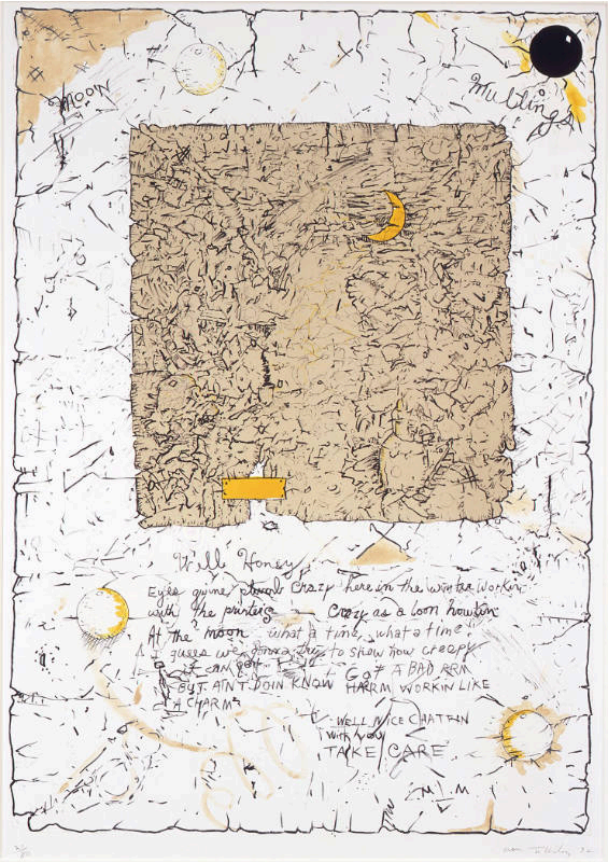 MOON
Mullings
Well Honey,
Eyes gwine plumb crazy here in the winter workin
with the printers — Crazy as a loon howlin
At the moon what a time, what a time!
I guess we gonna try to show how creepy
it can get. I Got A BAD ARM
BUT AIN'T DOIN KNOW HARRM WORKIN LIKE
A CHARM
WELL NICE CHATTIN
with you
TAKE CARE
M